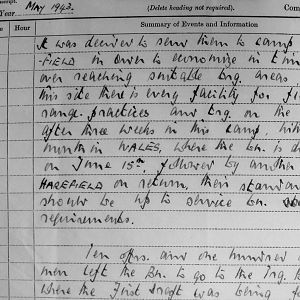 Year MAY 1943. (Delete heading not required). Com
Hour Summary of Events and Information
It was decided to send them to camp
-FIELD in order to economise in time
over reaching suitable trg. areas
this site there is every facility for fi
range practices and trg. on the
after three weeks in this camp,
month in WALES, where the Bn. is d
on June 15th, followed by another
HAREFIELD on return, their standard
should be up to service bn.
requirements.
Ten offrs. and one hundred
men left the Bn. to go to the Trg.
where the first draft was being f